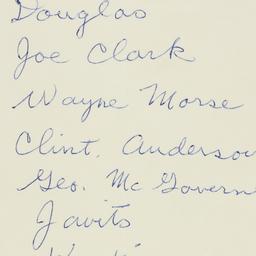 Douglas
Joe Clark
Wayne Morse
Clint. Anderson
Geo. McGovern
Javits